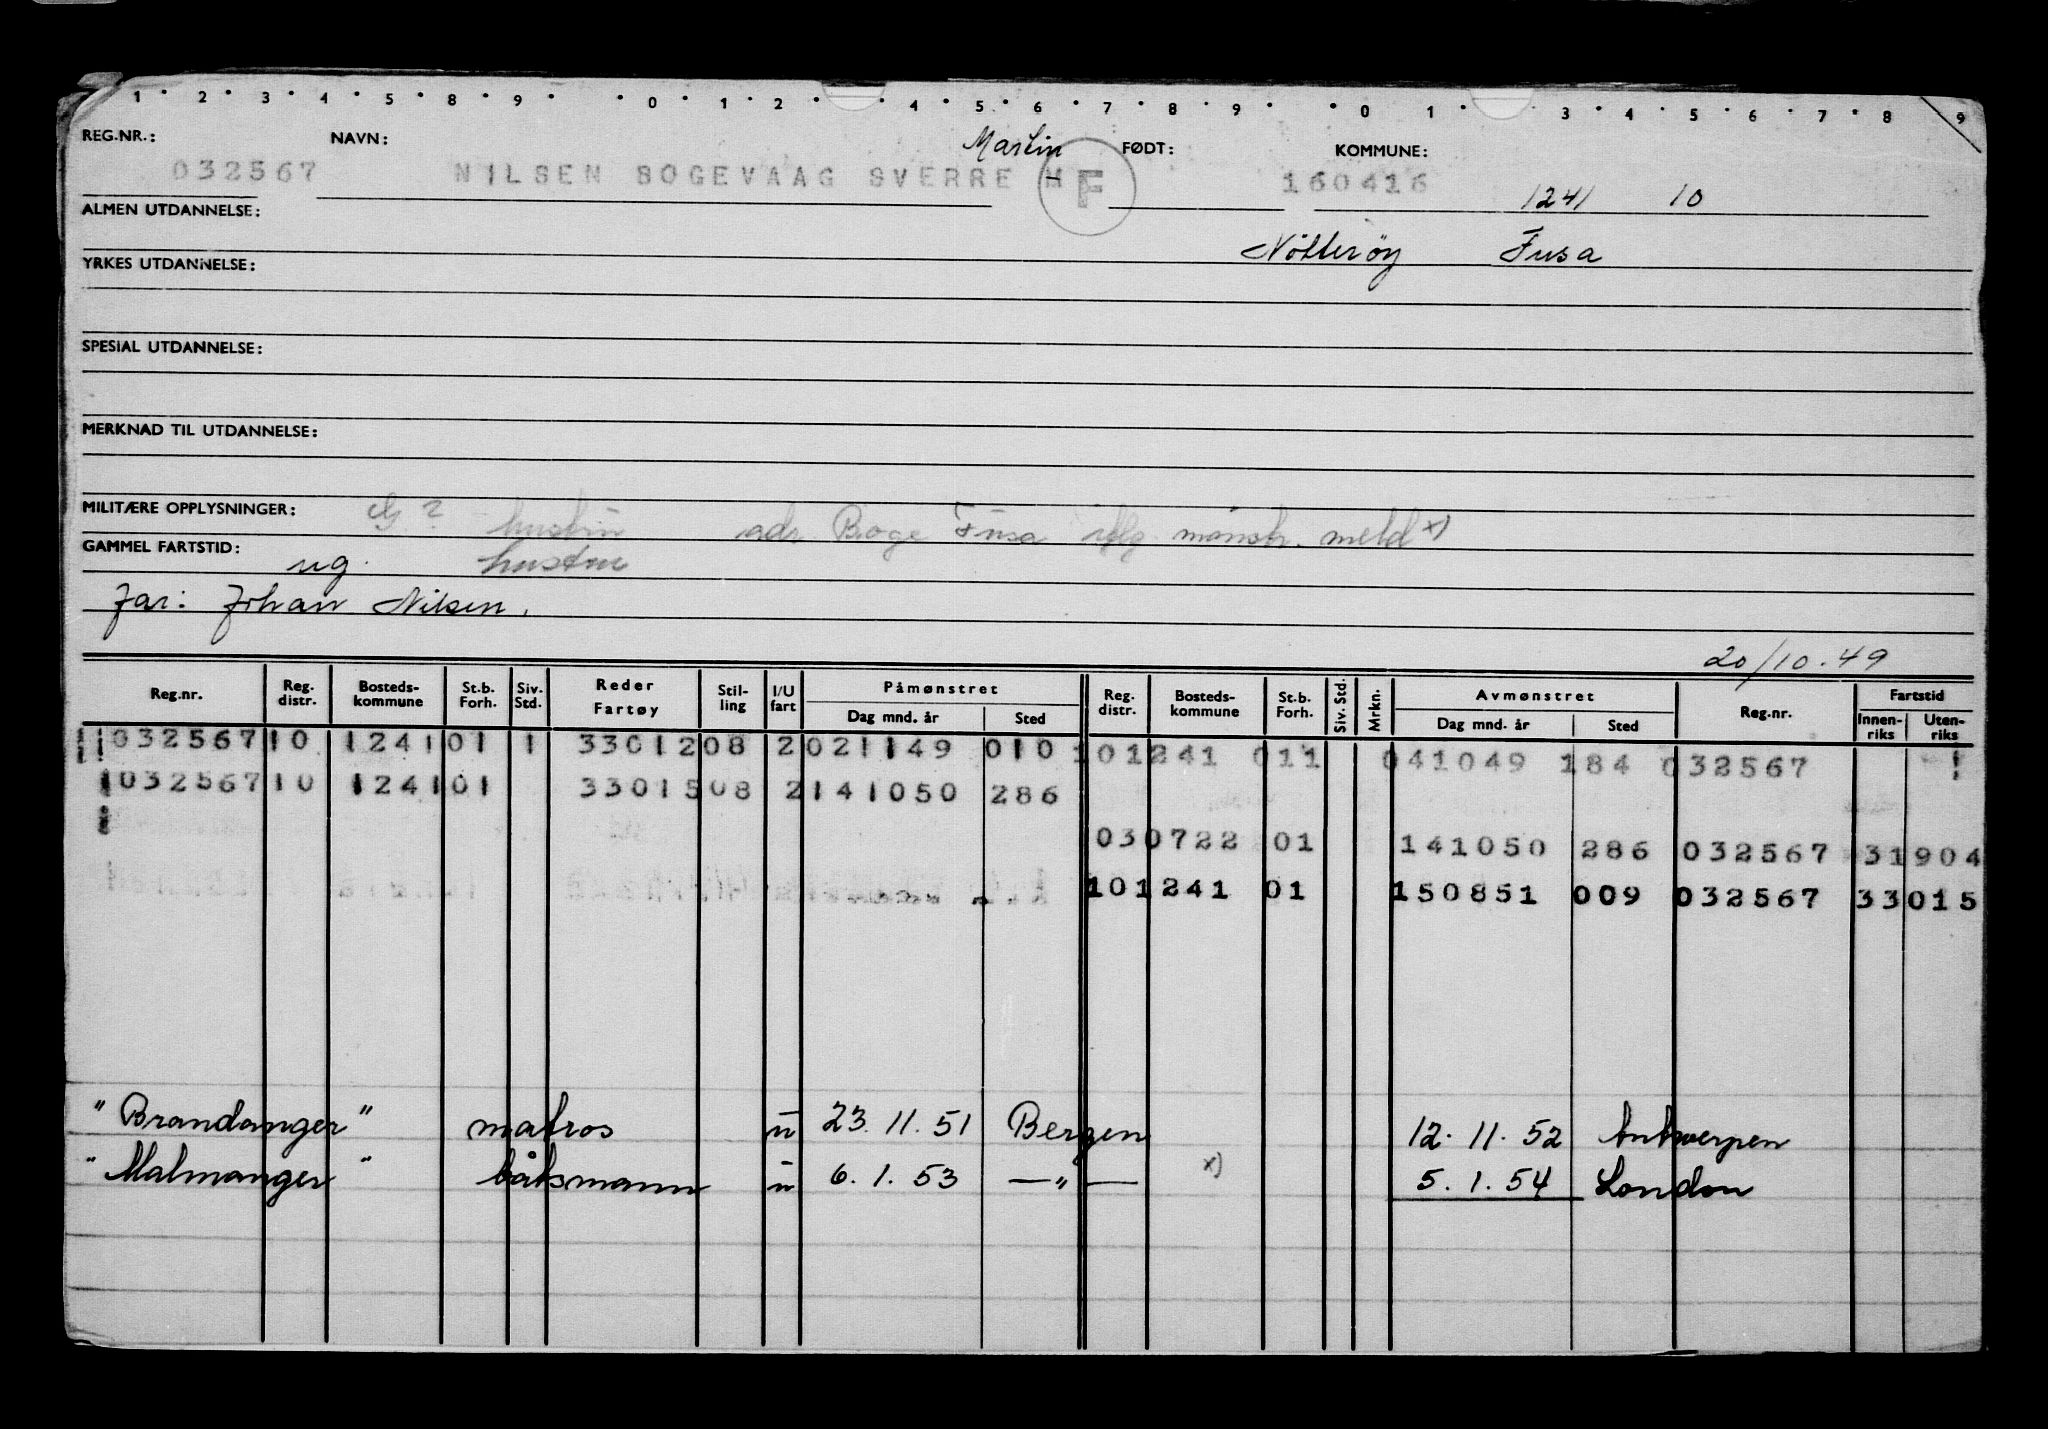 1 · 2 · 3 · 4 · 5 · 8 · 9 · · 0 · 1 · 2 · · 4 · 5 · 6 · 7 · 8 · 9 · · 0 · 1 · · 3 · 4 · 5 · 6 · 7 · 8 · 9
REG.NR.: NAVN: Martin FØDT: KOMMUNE:
032567 NILSEN BOGEVAAG SVERRE M F 160416 1241 10
ALMEN UTDANNELSE:
Nötteröy Fusa
YRKES UTDANNELSE:
SPESIAL UTDANNELSE:
MERKNAD TIL UTDANNELSE:
MILITÆRE OPPLYSNINGER: G ? hustru adr Boge Fusa iflg mönstr. meld x)
GAMMEL FARTSTID: ug. hustru
Far: Johan Nilsen.
20/10.49
Reg.nr. Reg. distr. Bosteds- kommune St.b. Forh. Siv. Std. Reder Fartøy Stil- ling I/U fart Påmønstret Dag mnd. år Sted Reg. distr. Bosteds- kommune St.b. Forh. Siv. Std. Mrkn. Avmønstret Dag mnd. år Sted Reg.nr. Fartstid Innen- riks Uten- riks
032567 10 1241 01 1 33012 08 2 021149 010 101241 011 041049 184 032567
032567 10 1241 01 33015 08 2 141050 286
030722 01 141050 286 032567 31904
101241 01 150851 009 032567 33015
"Brandanger" matros u 23.11.51 Bergen 12.11.52 Antwerpen
"Malmanger" båtsmann u 6.1.53 —"— x) 5.1.54 London